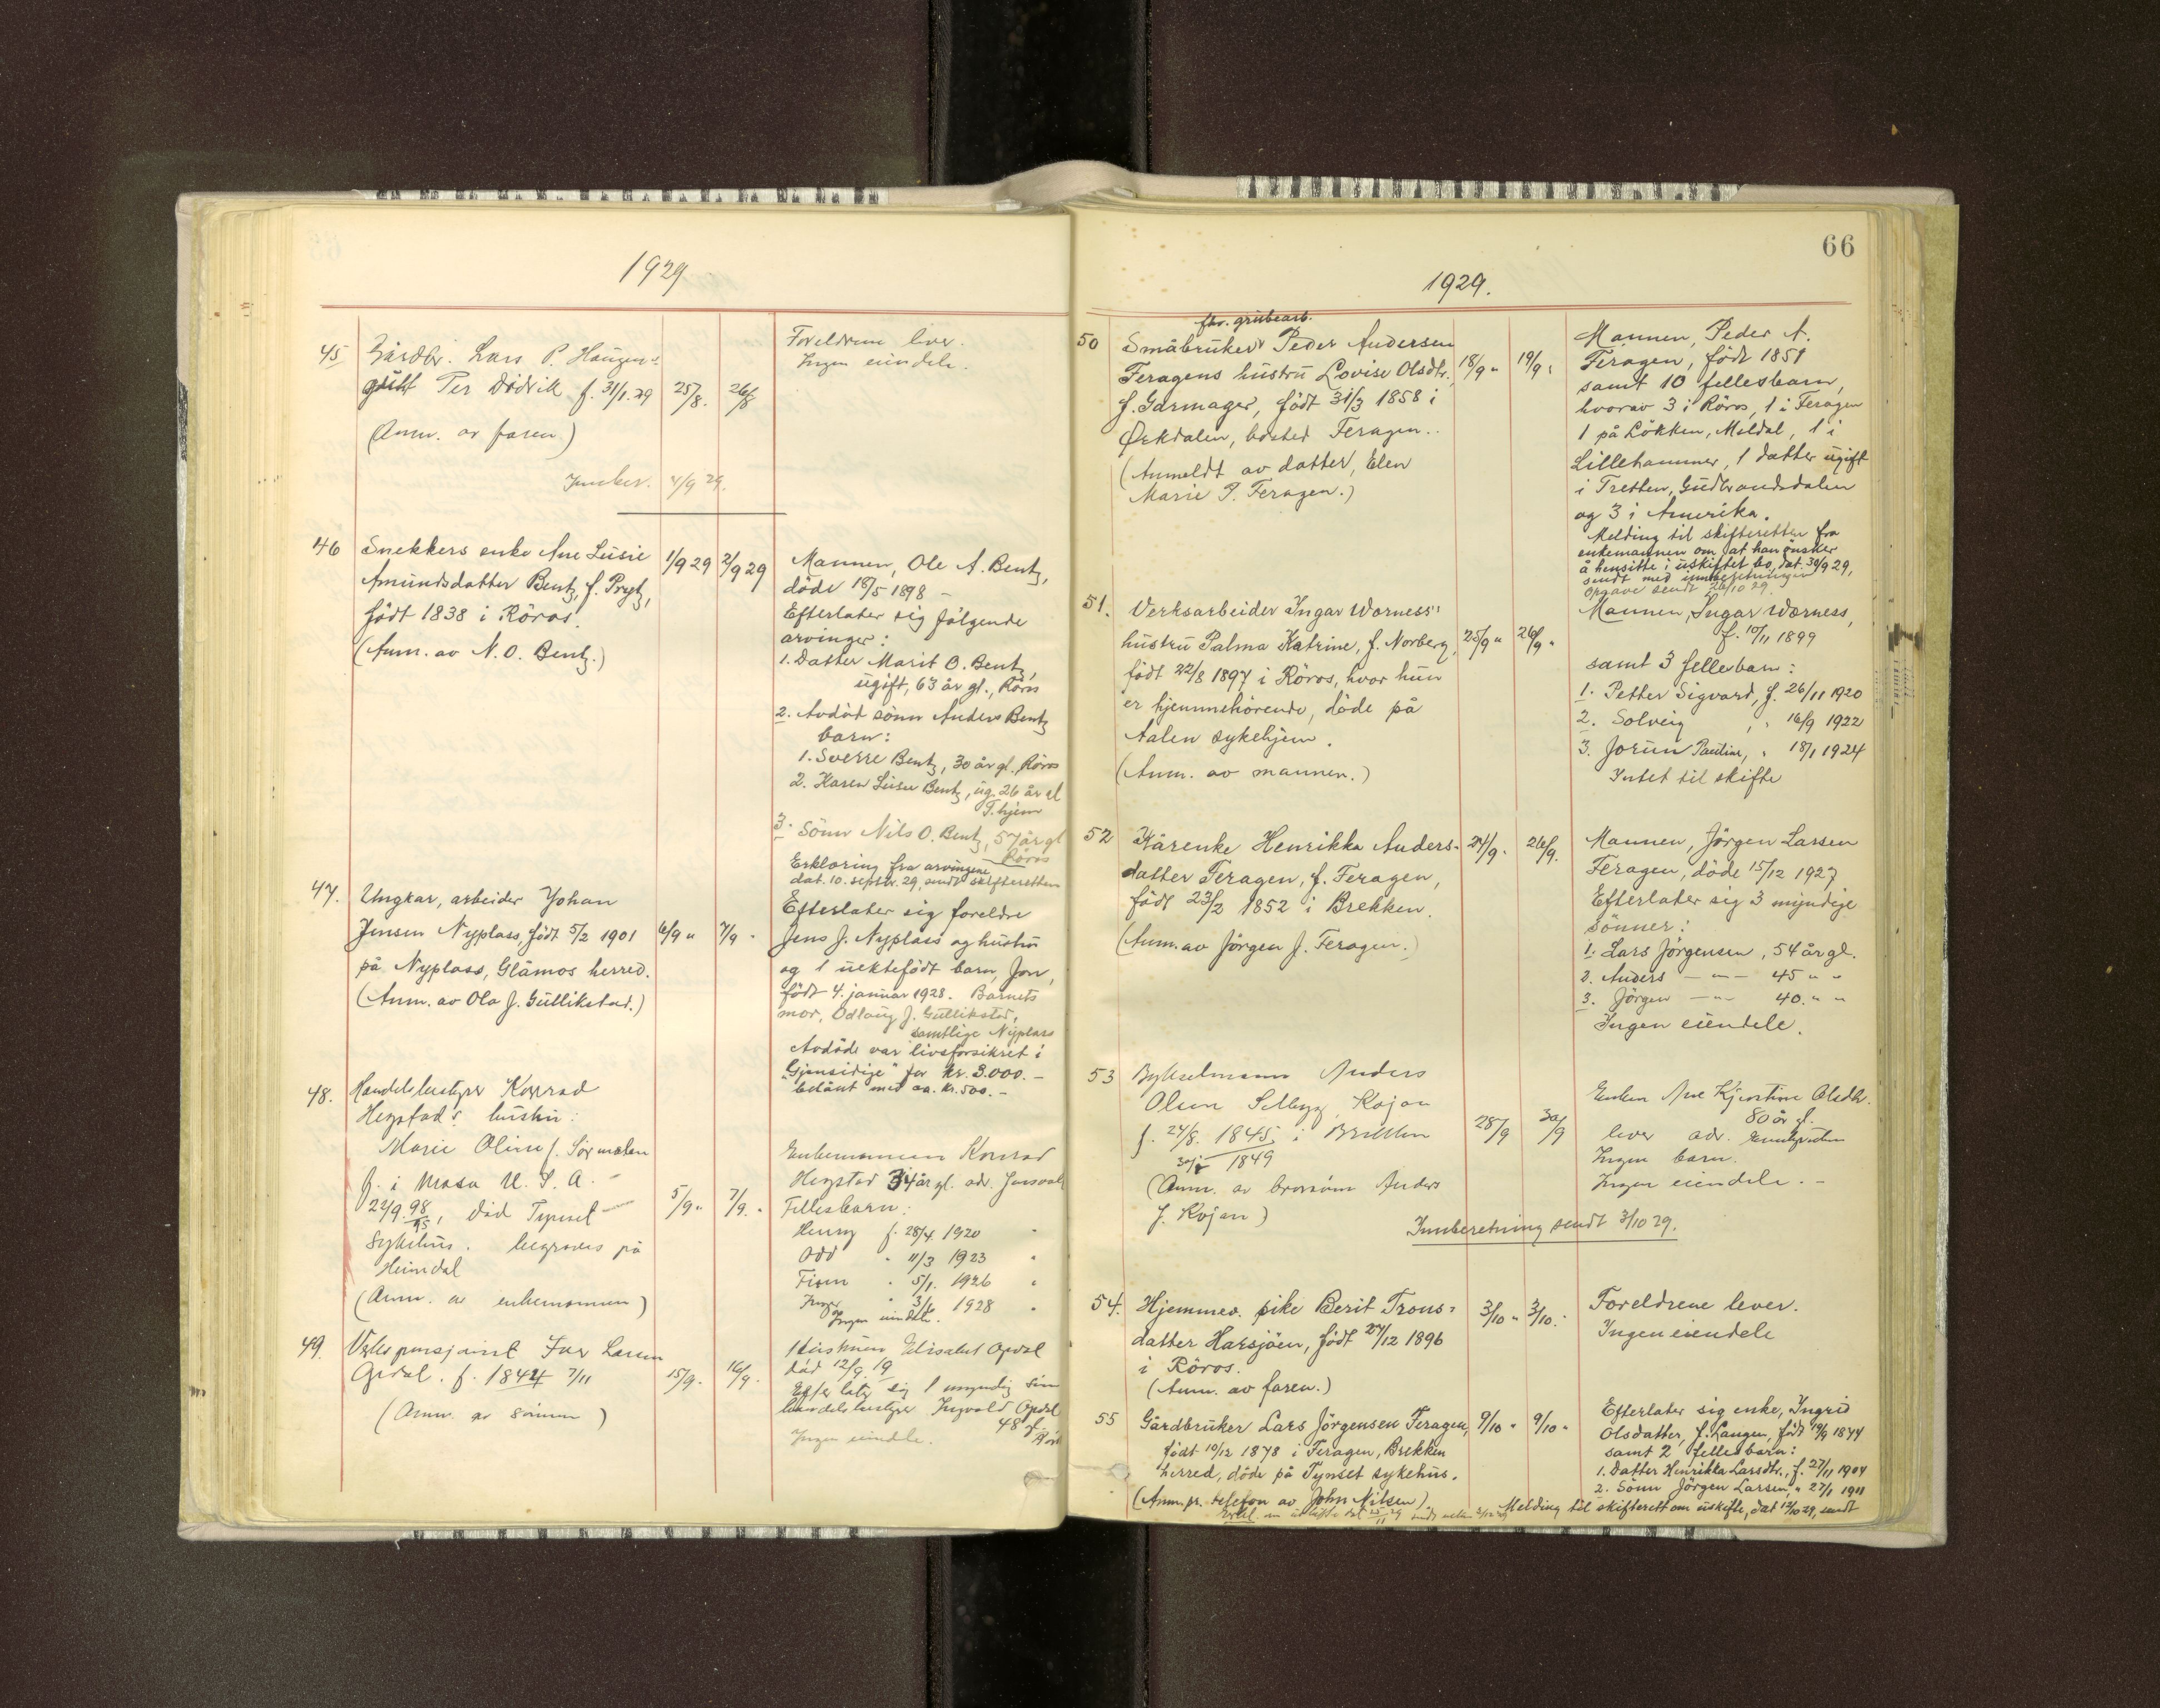 1929
45 Gårdbr. Lars P. Haugen's
gutt Per Didrik f. 31/1.29 25/8. 26/8
(Anm. av faren.)
Foreldrene lever.
Ingen eiendele.
Innber. 4/9 29.
46 Snekkers enke Ane Lusie 1/9 29 2/9 29
Amundsdatter Bentz, f. Prytz,
født 1838 i Röros.
(Anm. av N. O. Bentz.)
Mannen, Ole A. Bentz,
döde 18/5 1898 –
Efterlater sig fölgende
arvinger:
1. Datter Marit O. Bentz,
ugift, 63 år gl., Röros
2. Avdöd sönn Anders Bentz
barn:
1. Sverre Bentz, 30 år gl. Röros
2. Karen Luise Bentz, ug. 26 år gl
T.hjem
3. Sönn Nils O. Bentz, 57 år gl
Röros
Erklæring fra arvingene
dat. 10. septbr. 29, sendt skifteretten
47. Ungkar, arbeider Johan
Jensen Nyplass, født 5/2 1901 6/9 " 7/9 "
på Nyplass, Glåmos herred.
(Anm. av Ola J. Gullikstad.)
Efterlater sig foreldre
Jens J. Nyplass og hustru
og 1 uektefödt barn, Jon,
født 4. januar 1928. Barnets
mor, Odlaug J. Gullikstad,
samtlige Nyplass
Avdöde var livsforsikret i
"Gjensidige" for kr. 3.000. –
belånt med ca. kr. 500. –
48. Handelsbestyrer Konrad
Hegstad's hustru:
Marie Oline f. Sörmælen
f. i Masa U. S. A. –
22/9. 98/95, död Tynset 5/9 " 7/9. "
Sykehus. begraves på
Heimdal
(Anm. av enkemannen)
Enkemannen Konrad
Hegstad 34 år gl. adr. Jensvoll
Fellesbarn:
Henry f. 28/4 1920 "
Odd " 11/3 1923 "
Finn " 5/1. 1926 "
Inger " 3/6 1928 "
Ingen eiendele.
49. Verkspensjonist Iver Larsen
Opdal. f. 1844 7/11 15/9. 16/9.
(Anm. av sönnen)
Hustruen Elisabet Opdal
död 12/9. 19
Efterlater sig 1 myndig sönn
handelsbestyrer Ingvald Opdal
48 gl.
Röros
Ingen eiendele.
66
1929.
fhv. grubearb.
50 Småbruker Peder Andersen
Feragens hustru Lovise Olsdtr. 18/9 " 19/9 "
f. Garmager, født 31/3 1858 i
Ørkdalen, bosted Feragen..
(Anmeldt av datter, Elen
Marie P. Feragen.)
Mannen, Peder A.
Feragen, född 1851
samt 10 fellesbarn,
hvorav 3 i Röros, 1 i Feragen
1 på Lökken, Meldal, 1 i
Lillehammer, 1 datter ugift
i Tretten, Gudbrandsdalen
og 3 i Amerika.
Melding til skifteretten fra
enkemannen om at han önsker
å hensitte i uskiftet bo, dat. 30/9 29,
sendt med innberetningen
Opgave sendt 26/10 29.
51. Verksarbeider Ingar Wærness'
hustru Palma Katrine, f. Norberg, 25/9 " 26/9 "
född 22/8 1897 i Röros, hvor hun
er hjemmehörende, döde på
Aalen sykehjem.
(Anm. av mannen.)
Mannen, Ingar Wærness,
f. 10/11 1899
samt 3 fellesbarn:
1. Petter Sigvard, f. 26/11 1920
2. Solveig " 16/9 1922
3. Jorun Pauline, " 18/1 1924
Intet til skifte
52 Kårenke Henrikka Anders- 24/9. 26/9.
datter Feragen, f. Feragen,
född 23/2 1852 i Brekken.
(Anm. av Jörgen J. Feragen.)
Mannen, Jörgen Larsen
Feragen, döde 15/12 1927
Efterlater sig 3 myndige
sönner:
1. Lars Jörgensen, 54 år gl.
2. Anders –"– 45 " "
3. Jörgen –"– 40. " "
Ingen eiendele.
53 Bygselmann Anders
Olsen Selbyg, Kojan
f. 24/8. 1845 i Brekken 28/9 30/9
1849
(Anm. av brorsönn Anders
J. Kojan)
Enken Ane Kjerstine Olsdtr.
80 år gl.
lever adr.
Ingen barn.
Ingen eiendele. –
Innberetning sendt 3/10 29.
54. Hjemmev. pike Berit Trons- 3/10 " 3/10.
datter Harsjöen, født 27/12 1896
i Röros.
(Anm. av faren.)
Foreldrene lever.
Ingen eiendele
55 Gårdbruker Lars Jörgensen Feragen, 9/10 " 9/10 "
födt 10/12 1878 i Feragen, Brekken
herred, döde på Tynset sykehus.
(Anm. pr. telefon av John Nilsen)
Efterlater sig enke, Ingrid
Olsdatter, f. Langen, födt 19/9 1874
samt 2 fellesbarn:
1. Datter Henrikka Larsdtr., f. 27/11 1904
2. Sönn Jörgen Larsen, " 27/1 1911
Melding til skifterett om uskifte, dat 12/10 29, sendt